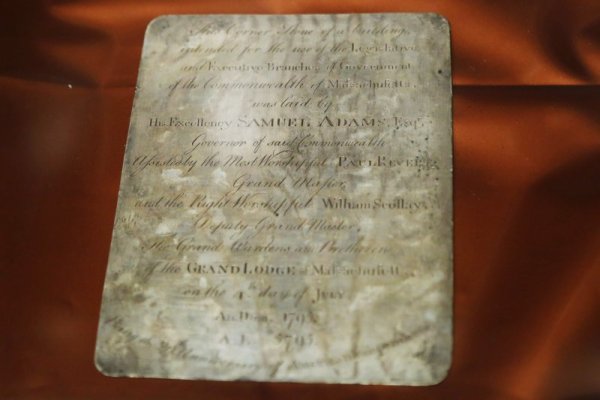 This Corner Stone of a building
intended for the use of the Legislative
and Executive Branches of Government
of the Commonwealth of Massachusetts,
was laid by
His Excellency SAMUEL ADAMS, Esqr.
Governor of said Commonwealth
Assisted by the Most Worshipful PAUL REVERE
Grand Master,
and the Right Worshipful William Scollay,
Deputy Grand Master,
The Grand Wardens and Brethren
of the GRAND LODGE of Massachusetts
on the 4th day of JULY
An. Dom. 1795
A. L. 5795